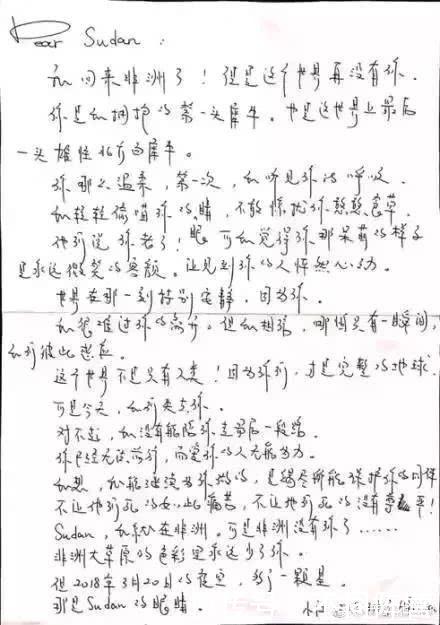 Dear Sudan：
我回来非洲了！但是这个世界再没有你。
你是我拥抱的第一头犀牛。也是这世界上最后
一头雄性北方白犀牛。
你那么温柔，第一次，我听见你的呼吸
我轻轻偷瞄你的眼睛，不敢惊扰你憨憨食草。
他们说你老了！可我觉得你那呆萌的样子
是永远微笑的容颜。让见到你的人怦然心动。
世界在那一刻特别安静，因为你。
我很难过你的离开。但我相信，哪怕只有一瞬间，
我们彼此感应。
这个世界不是只有人类！因为你们，才是完整的地球。
可是今天，我们失去你。
对不起，我没有能陪你走最后一段路。
你已经无法前行，而爱你的人无能为力。
我想，我能继续为你做的，是竭尽所能保护你的同伴
不让他们死的如此痛苦，不让他们死的没有尊严！
Sudan，我在非洲。可是非洲没有你了……
非洲大草原的色彩里永远少了你。
但2018年3月20日的夜空，多了一颗星。
那是Sudan的眼睛。